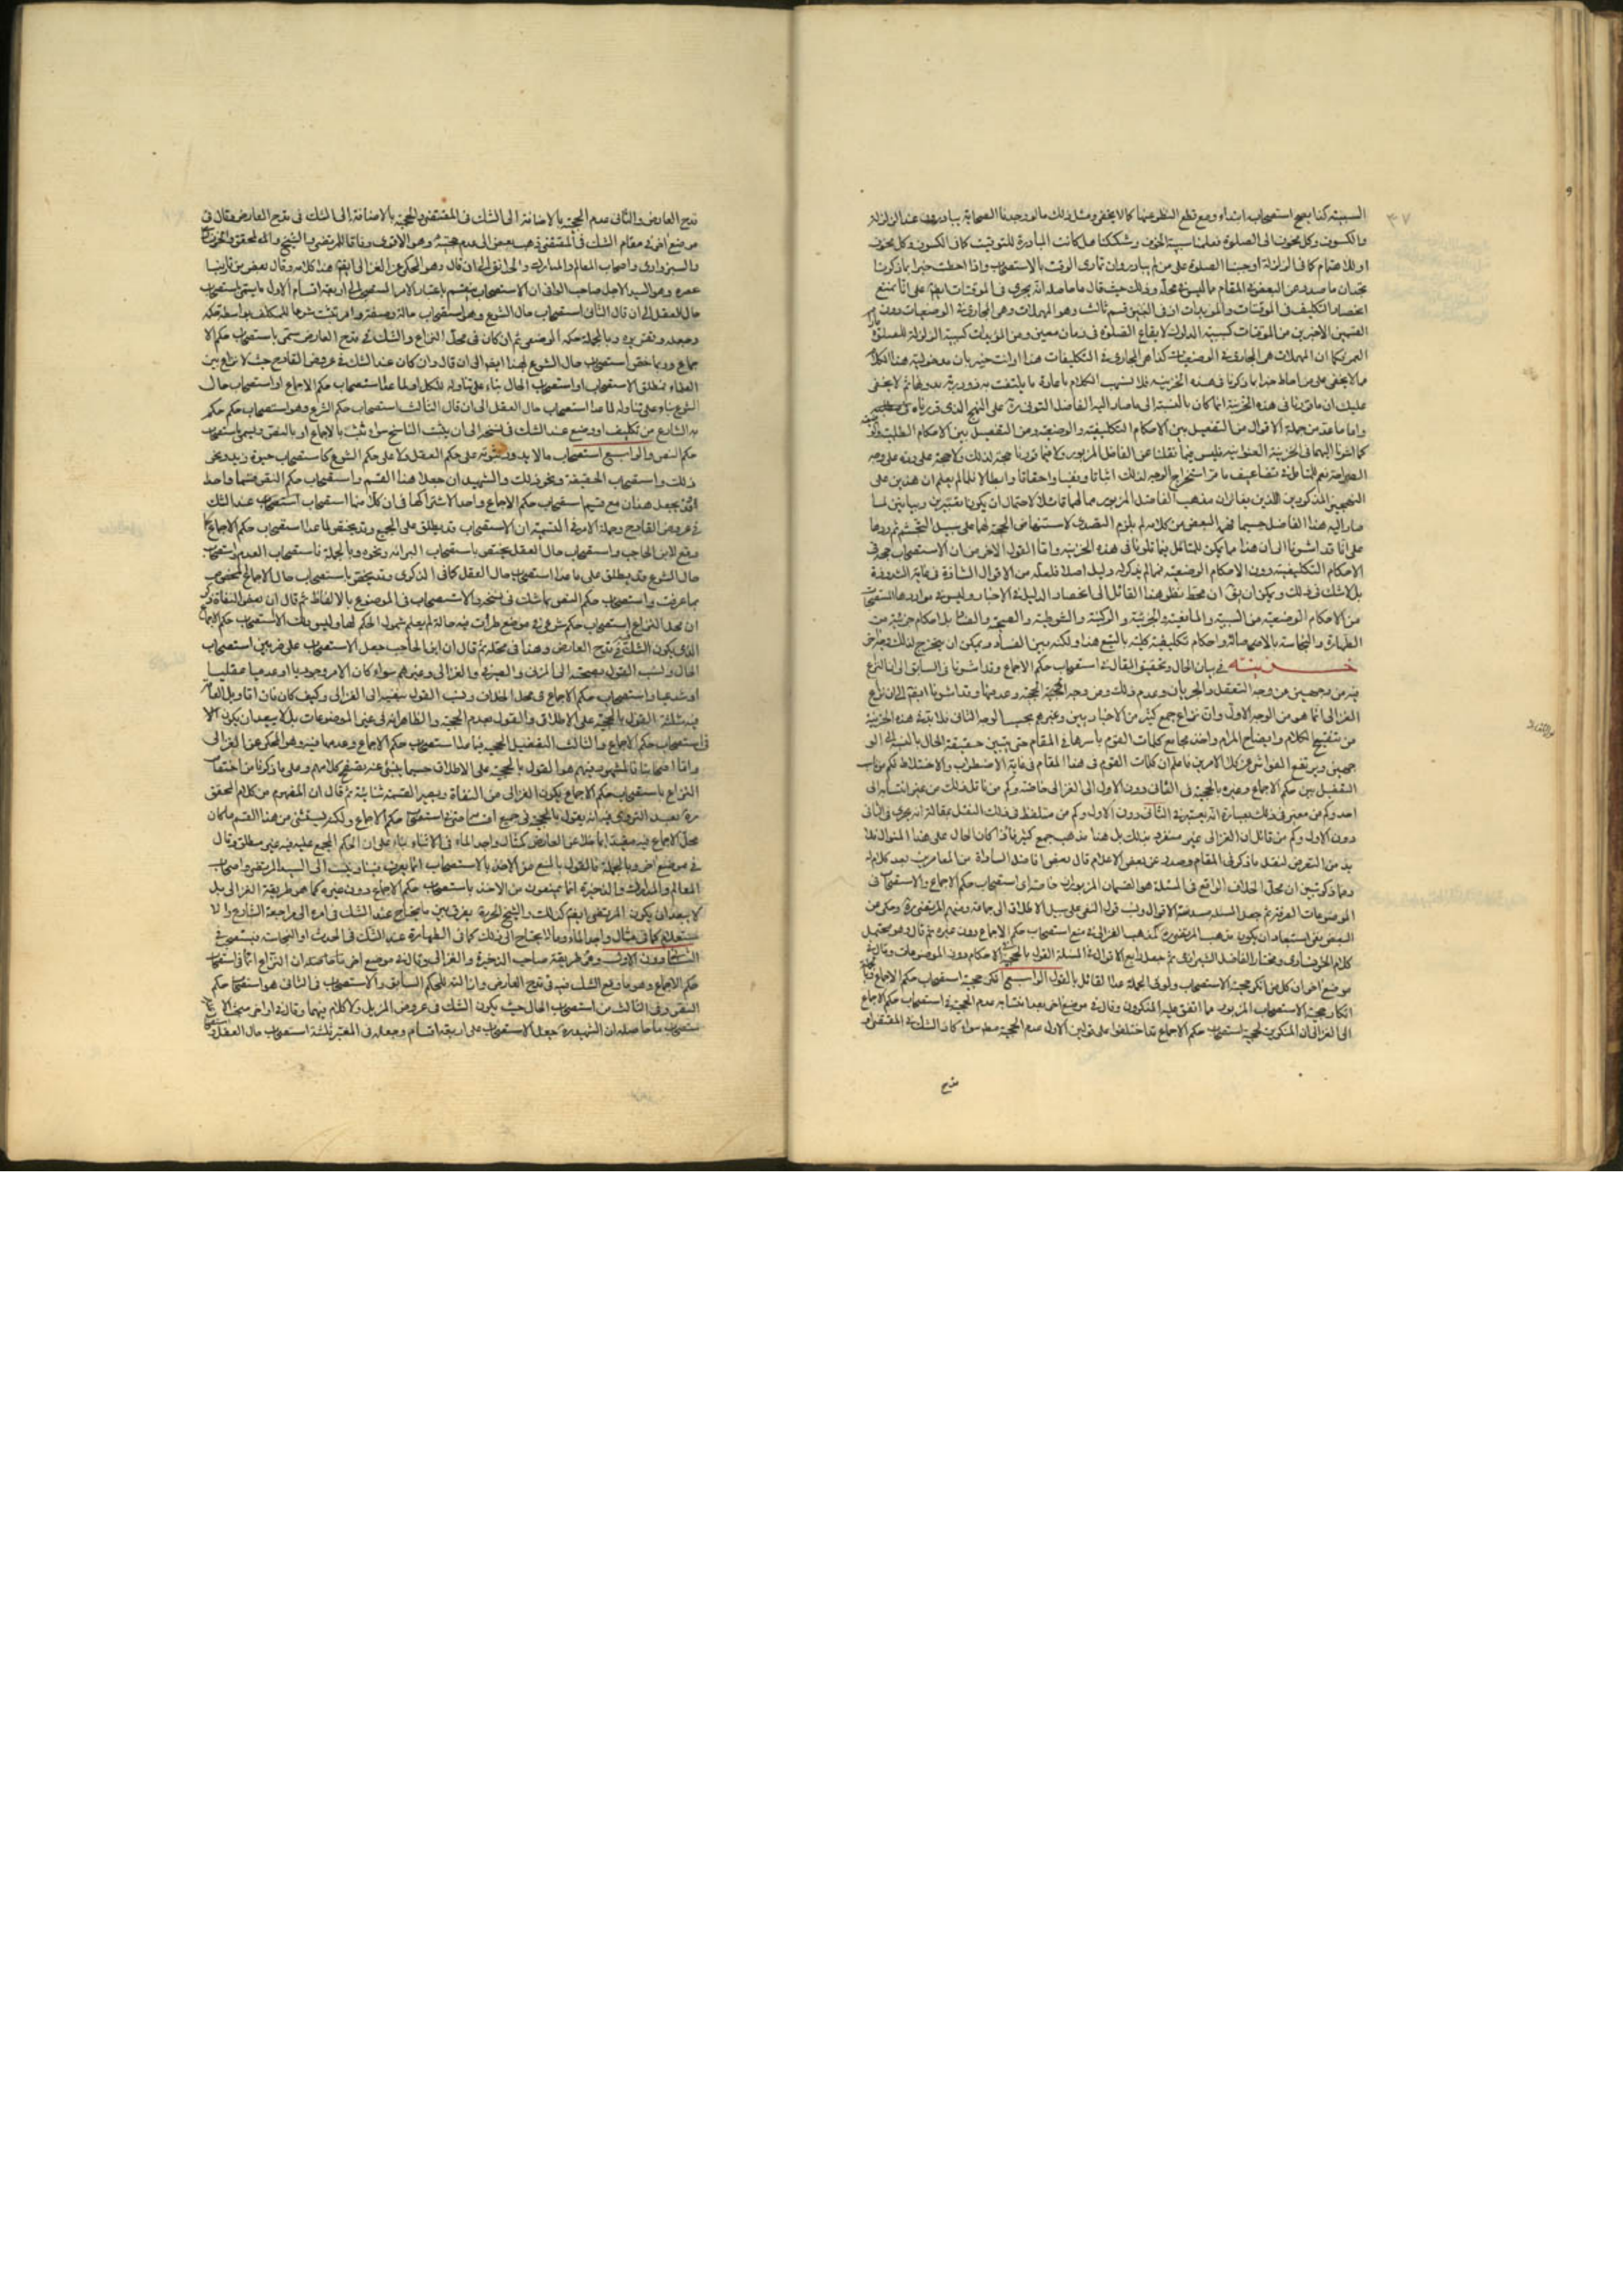 السببية كذا يصح استصحاب ابتداء ومع قطع النظر عنها كما لا يخفى ومثل ذلك ما لو وجدنا الصحابة يبادرون عند الزلزلة
والكسوف وكل مخوف الى الصلوة فعلمنا سببية الخوف وشككنا هل كانت المبادرة للتوقيت كما في الكسوف وكل مخوف
او للاهتمام كما في الزلزلة اوجبنا الصلوة على من لم يبادر وان تمادى الوقت بالاستصحاب واذا احطت خبرا بما ذكرنا
تجد ان ما صدر عن البعض في المقام مما ليس في محله وذلك حيث قال ما حاصله انه يجري في الموقتات ايضا على انا نمنع
انحصار التكليف في الموقتات والمؤبدات اذ في البين قسم ثالث وهو المهملات وهي الجارية في الوضعيات دون
القسمين الاخيرين من الموقتات كسببية الدلوك لايقاع الصلوة في زمان معين ومن المؤبدات كسببية الزلزلة للصلوة
العمر كما ان المهملات هي الجارية في الوضعيات كذا هي الجارية في التكليفات هذا وانت خبير بان مدخولية هذا الكلام
مما لا يخفى على من احاط خبرا بما ذكرنا في هذه الخزينة فلا نسهب الكلام باعادة ما يلتفت به ذو دربة ثم لا يخفى
عليك ان ما قررنا في هذه الخزينة انما كان بالنسبة الى ما صار اليه الفاضل التوني ره على النهج الذي قررناه
واما ما عد من جملة الاقوال من التفصيل بين الاحكام التكليفية والوضعية ومن التفصيل بين الاحكام الطلبية
كما اشرنا اليهما في الخزينة فليس فيما نقلنا عن الفاضل المزبور ولا فيما قررنا حجة لذلك ولا حجة على رده على وجه
الصراحة نعم للمتأمل في تضاعيف ما مر استخراج الوجه لذلك اثباتا ونفيا واحقاقا وابطالا ثم ليعلم ان هذين على
النهجين المذكورين اللذين يغايران مذهب الفاضل المزبور مما لهما قائل لاحتمال ان يكونا معتبرين ويباينين لما
صار اليه هذا الفاضل حسبما فهم البعض من كلامه لم يلزم التصدي لاستنهاض الحجة لهما على سبيل التجشم ثم ردها
على انا قد اشرنا الى ان هذا مما يمكن للمتأمل فيما تلونا في هذه الخزينة واما القول الاخر من ان الاستصحاب حجة في
الاحكام التكليفية دون الاحكام الوضعية فمما لم يذكر له دليل اصلا فلعله من الاقوال الشاذة في غاية الشذوذ
بل لا شك في ذلك ويمكن ان يقال ان محط نظر هذا القائل الى انحصار الدليل في الاخبار وليس في مواردها استصحاب
من الاحكام الوضعية من السببية والمانعية والجزئية والركنية والشرطية والصحة والفساد بل احكام جزئية من
الطهارة والنجاسة بالاصالة واحكام تكليفية كلية بالتبع هذا ولكنه بين الفساد ويمكن ان يستخرج لذلك
خـــزينـــة في بيان الحال وتحقيق المقال في استصحاب حكم الاجماع وقد اشرنا في السابق الى ان النزاع
فيه من وجهين من وجه التعقل والجريان وعدم ذلك ومن وجه الحجية وعدمها وقد اشرنا ايضا الى ان نزاع
الغزالى انما هو من الوجه الاول وان نزاع جمع كثير من الاخباريين وغيرهم بحسب الوجه الثاني فلا بد في هذه الخزينة
من تنقيح الكلام وايضاح المرام واخذ مجامع كلمات القوم باسرها في المقام حتى يتبين حقيقة الحال بالنسبة الى الو
جهين ويرتفع الغواشى عن كلا الامرين فاعلم ان كلمات القوم في هذا المقام في غاية الاضطراب والاختلاط فكم من ناسب
التفصيل بين حكم الاجماع وغيره بالحجية في الثاني دون الاول الى الغزالى خاصة وكم من ناقل ذلك من غير انتسابه الى
احد وكم من معبر في ذلك بعبارة انه يعتبر في الثاني دون الاول وكم من متلفظ في ذلك النقل بمقالة انه يجري في الثاني
دون الاول وكم من قائل ان الغزالى غير منفرد بذلك بل هذا مذهب جمع كثير فاذا كان الحال على هذا المنوال فلا
بد من التعرض لنقل ما ذكر في المقام وصدر عن بعض الاعلام قال بعض افاضل السادة من المعاصرين بعد كلام له
وبما ذكر تبين ان محل الخلاف الواقع في المسئلة هو القسمان المزبوران خاصة اى استصحاب حكم الاجماع والاستصحاب في
الموضوعات الصرفة ثم جعل المسئلة مسدسة الاقوال ونسب قول النفي على سبيل الاطلاق الى جماعة ومنهم المرتضى ره وحكى عن
البعض نفى استبعاد ان يكون مذهب المرتضى ره كمذهب الغزالى في منع استصحاب حكم الاجماع دون غيره ثم قال وهو محتمل
كلام الخوانسارى ومختار الفاضل الشيرازى ثم جعل رابع الاقوال في المسئلة القول بالحجية في الاحكام دون الموضوعات وقال في
موضع اخر ان كل من انكر حجية الاستصحاب ولو في الجملة عدا القائل بالقول الرابع انكر حجية استصحاب حكم الاجماع
انكار حجية الاستصحاب المزبور مما اتفق عليه المنكرون وقال في موضع اخر بعد انتسابه عدم الحجية في استصحاب حكم الاجماع
الى الغزالى ان المنكرين لحجية استصحاب حكم الاجماع قد اختلفوا على قولين الاول عدم الحجية مط سواء كان الشك في المقتضى او
قدح
قدح العارض والثاني عدم الحجية بالاضافة الى الشك في المقتضى والحجية بالاضافة الى الشك في قدح العارض وقال في
موضع اخر في مقام الشك في المقتضى ذهب بعض الى عدم حجيته وهو الاقوى وفاقا للمرتضى والشيخ والمحقق
والسبزوارى واصحاب المعالم والمدارك والحدائق الى ان قال وهو المحكى عن الغزالى ايضا هذا كلامه وقال بعض من قارب
عصره وهو السيد الاجل صاحب الوافى ان الاستصحاب ينقسم باعتبار الامر المستصحب الى اربعة اقسام الاول ما يسمى باستصحاب
حال العقل الى ان قال الثاني استصحاب حال الشرع وهو استصحاب حالة وصفة وامر تثبت شرعا للمكلف بواسطة حكمه
وجعله وتقريره وبالجملة حكمه الوضعى ثم ان كان في محل النزاع والشك في قدح العارض سمى باستصحاب حكم الا
جماع وربما خص استصحاب حال الشرع بهذا ايضا الى ان قال وان كان عند الشك في عروض القادح حيث لا نزاع بين
العلماء بمطلق الاستصحاب او استصحاب الحال بناء على تناوله للكل او لما عدا استصحاب حكم الاجماع او استصحاب حال
الشرع بناء على تناوله لما عدا استصحاب حال العقل الى ان قال الثالث استصحاب حكم الشرع وهو استصحاب حكم حكم
به الشارع من تكليف او وضع عند الشك في نسخه الى ان يثبت الناسخ سواء ثبت بالاجماع او بالنص وليسم باستصحاب
حكم النص والرابع استصحاب ما لا يدور ثبوته على حكم العقل ولا على حكم الشرع كاستصحاب حيوة زيد ونحو
ذلك واستصحاب الحقيقة ونحو ذلك والشهيدان جعلا هذا القسم واستصحاب حكم النص قسما واحدا
في عروض القادح وجملة الامر في التسمية ان الاستصحاب قد يطلق على الجميع وقد يختص لما عدا استصحاب حكم الاجماع
وقع لابن الحاجب واستصحاب حال العقل يختص باستصحاب البرائة ونحوه وبالجملة فاستصحاب العدم واستصحاب
حال الشرع قد يطلق على ما عدا استصحاب حال العقل كما في الذكرى وقد يختص باستصحاب حال الاجماع المخصوص
بما عرفت واستصحاب حكم النص بما شك في نسخه والاستصحاب في الموضوع بالالفاظ ثم قال ان بعض النفاة
ان محل النزاع استصحاب حكم شرعى في موضع طرأت فيه حالة لم يعلم شمول الحكم لها وليس ذلك الا استصحاب حكم الاجماع
الذى يكون الشك في قدح العارض وهذا في محله ثم قال ان ابن الحاجب جعل الاستصحاب على ضربين استصحاب
الحال ونسب القول بصحته الى المزنى والصيرفى والغزالى وغيرهم سواء كان الامر وجوديا او عدميا عقليا
او شرعيا واستصحاب حكم الاجماع في محل الخلاف ونسب القول بنفيه الى الغزالى وكيف كان فان اقاويل العامة
فيه ثلثة القول بالحجية على الاطلاق والقول بعدم الحجية والظاهر انه في غير الموضوعات بل لا يبعد ان يكون الا
في استصحاب حكم الاجماع والثالث التفصيل الحجية فيما عدا استصحاب حكم الاجماع وعدمها فيه وهو المحكى عن الغزالى
واما اصحابنا فالمشهور بينهم هو القول بالحجية على الاطلاق حسبما ينبئ عنه تصفح كلامهم وعلى ما ذكرنا من اختصاص
النزاع باستصحاب حكم الاجماع يكون الغزالى من النفاة ويصير القسمة ثنائية ثم قال ان المفهوم من كلام المحقق
ره بعد التروى فيه انه يقول بالحجية في جميع اقسامه حتى استصحاب حكم الاجماع ولكنه يستثنى من هذا القسم ما كان
محل الاجماع فيه مقيدا بما خلا عن العارض كمثال واجد الماء في الاثناء بناء على ان الحكم المجمع عليه فيه غير مطلق وقال
في موضع اخر وبالجملة فالقول بالمنع من الاخذ بالاستصحاب انما يعرف فينا وينسب الى السيد المرتضى واصحاب
المعالم والمدارك والذخيرة انما يمنعون من الاخذ باستصحاب حكم الاجماع دون غيره كما هو طريقة الغزالى بل
لا يبعد ان يكون المرتضى ايضا كذلك والشيخ الحر ره يفرق بين ما يحتاج عند الشك في امره الى مراجعة الشارع والا
ستعلام كما في مثال واجد الماء وما لا يحتاج الى ذلك كما في الطهارة عند الشك في الحدث او النجاسة فيستصحب في
الثاني دون الاول وهي طريقة صاحب الذخيرة والغزالى وقال في موضع اخر ما حاصله ان النزاع انما في استصحاب
حكم الاجماع وهو ما وقع الشك فيه في قدح العارض وازالته للحكم السابق والاستصحاب في الثاني هو استصحاب حكم
النص وفي الثالث من استصحاب الحال حيث يكون الشك في عروض المزيل ولا كلام فيهما وقال في اواخر مبحث الا
ستصحاب ما حاصله ان الشهيد ره جعل الاستصحاب على اربعة اقسام وجعله في المعتبر ثلثة استصحاب حال العقل و